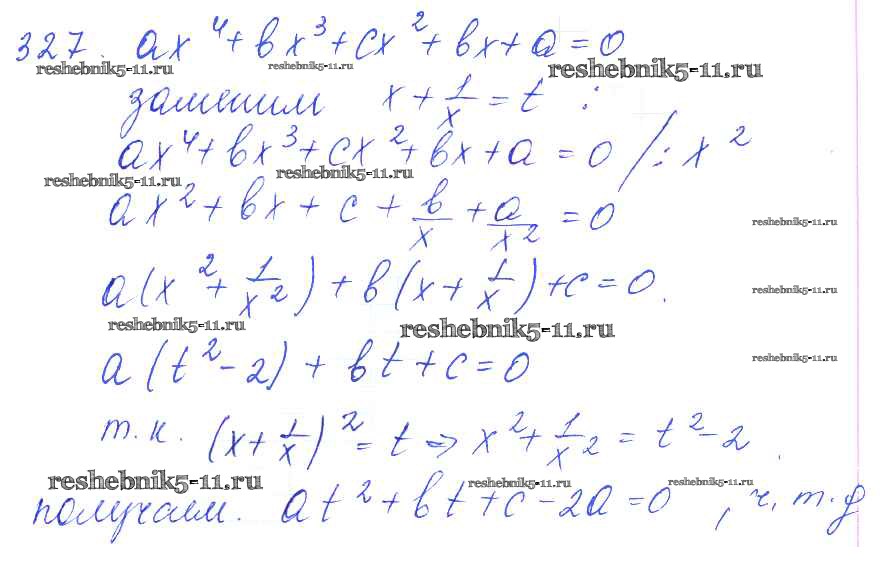 327. ax⁴ + bx³ + cx² + bx + a = 0
reshebnik5-11.ru reshebnik5-11.ru reshebnik5-11.ru
заменим x + 1/x = t :
ax⁴ + bx³ + cx² + bx + a = 0 /: x²
reshebnik5-11.ru reshebnik5-11.ru
ax² + bx + c + b/x + a/x² = 0
reshebnik5-11.ru
a(x² + 1/x²) + b(x + 1/x) + c = 0.
reshebnik5-11.ru
reshebnik5-11.ru reshebnik5-11.ru
a(t² - 2) + bt + c = 0
reshebnik5-11.ru
т.к. (x + 1/x)² = t => x² + 1/x² = t² - 2.
reshebnik5-11.ru reshebnik5-11.ru reshebnik5-11.ru
получаем. at² + bt + c - 2a = 0 , ч.т.д